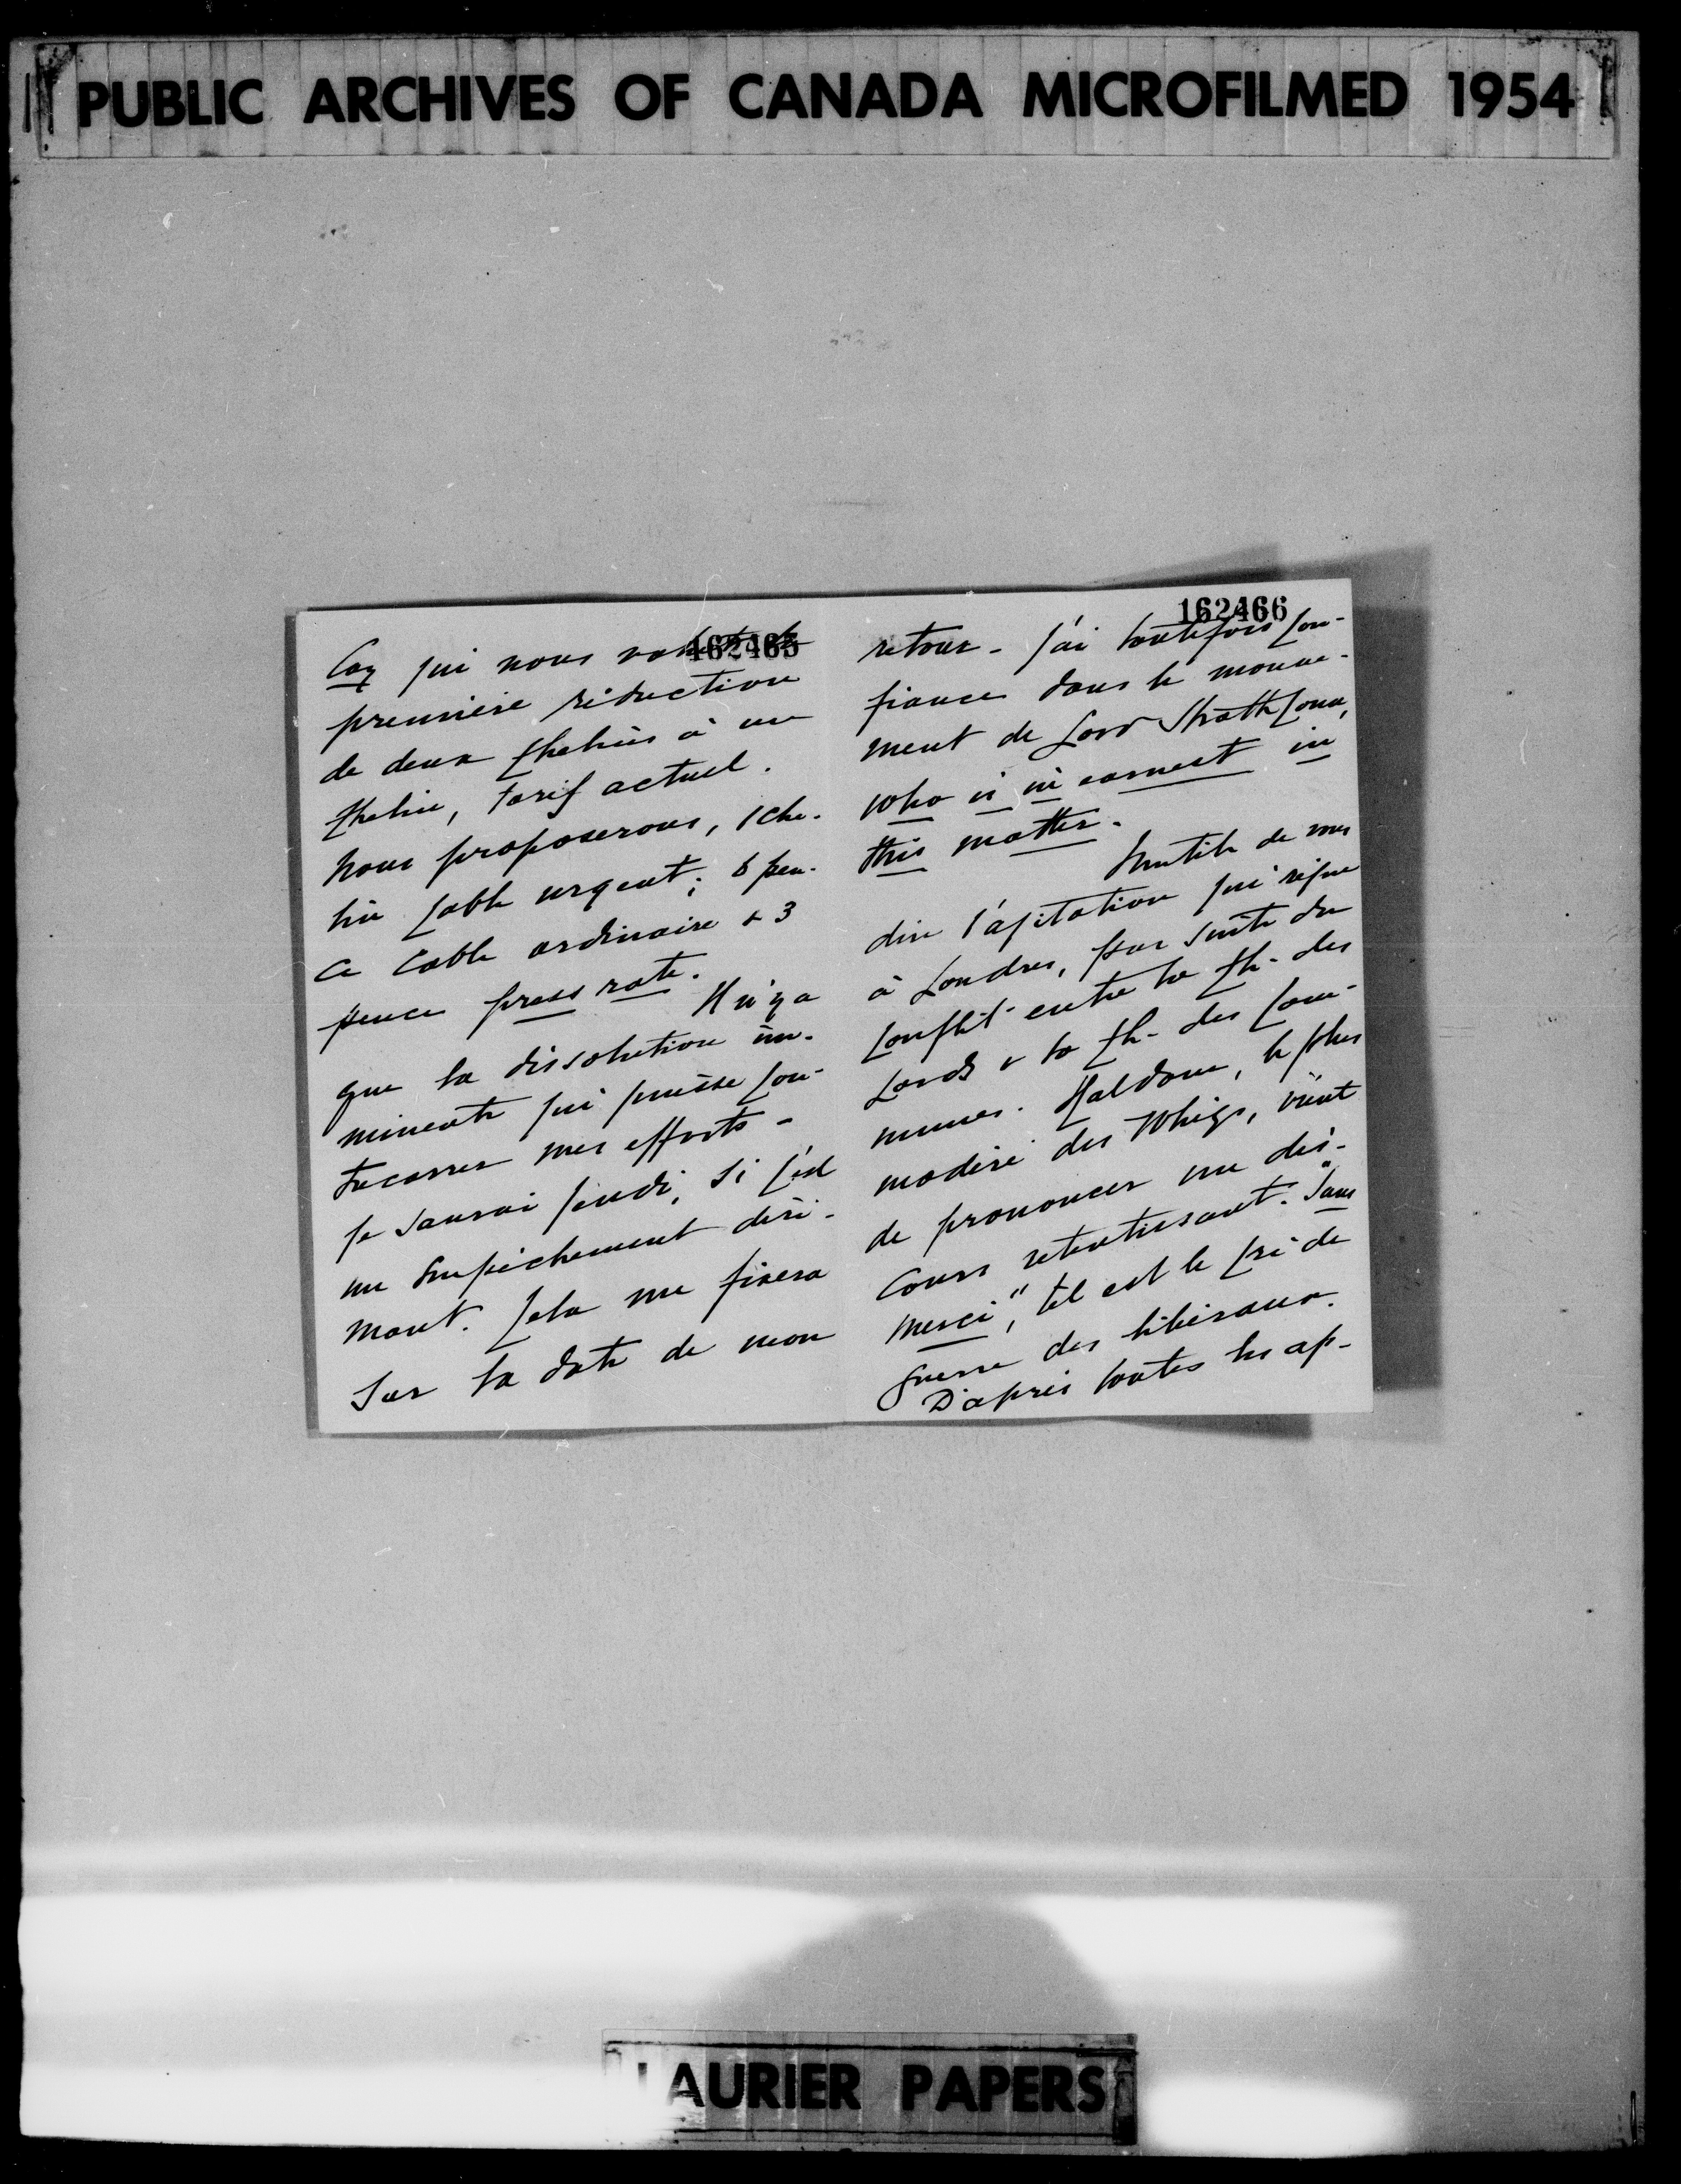 PUBLIC ARCHIVES OF CANADA MICROFILMED 1954
162465
Coy qui nous
première réduction
de deux chelins à un
chelin, tarif actuel.
Nous proposerons, 1 che-
lin cable urgent; 6 pen-
ce cable ordinaire & 3
pence press rate.
Il n'y a
que la dissolution im-
minente qui puisse con-
trecarrer mes efforts -
Je saurai jeudi, si c'est
un empêchement diri-
mant. Cela me fixera
sur la date de mon
162466
retour - J'ai toutefois con-
fiance dans le mouve-
ment de Lord Strathcona,
who is in earnest in
this matter.
Inutile de vous
dire l'agitation qui règne
à Londres, par suite du
conflit entre la Ch- des
Lords & la Ch- des Com-
munes. Haldane, le plus
modéré des Whigs, vient
de prononcer un dis-
cours retentissant. "Sans
merci", tel est le cri de
guerre des libéraux.
D'après toutes les ap-
LAURIER PAPERS